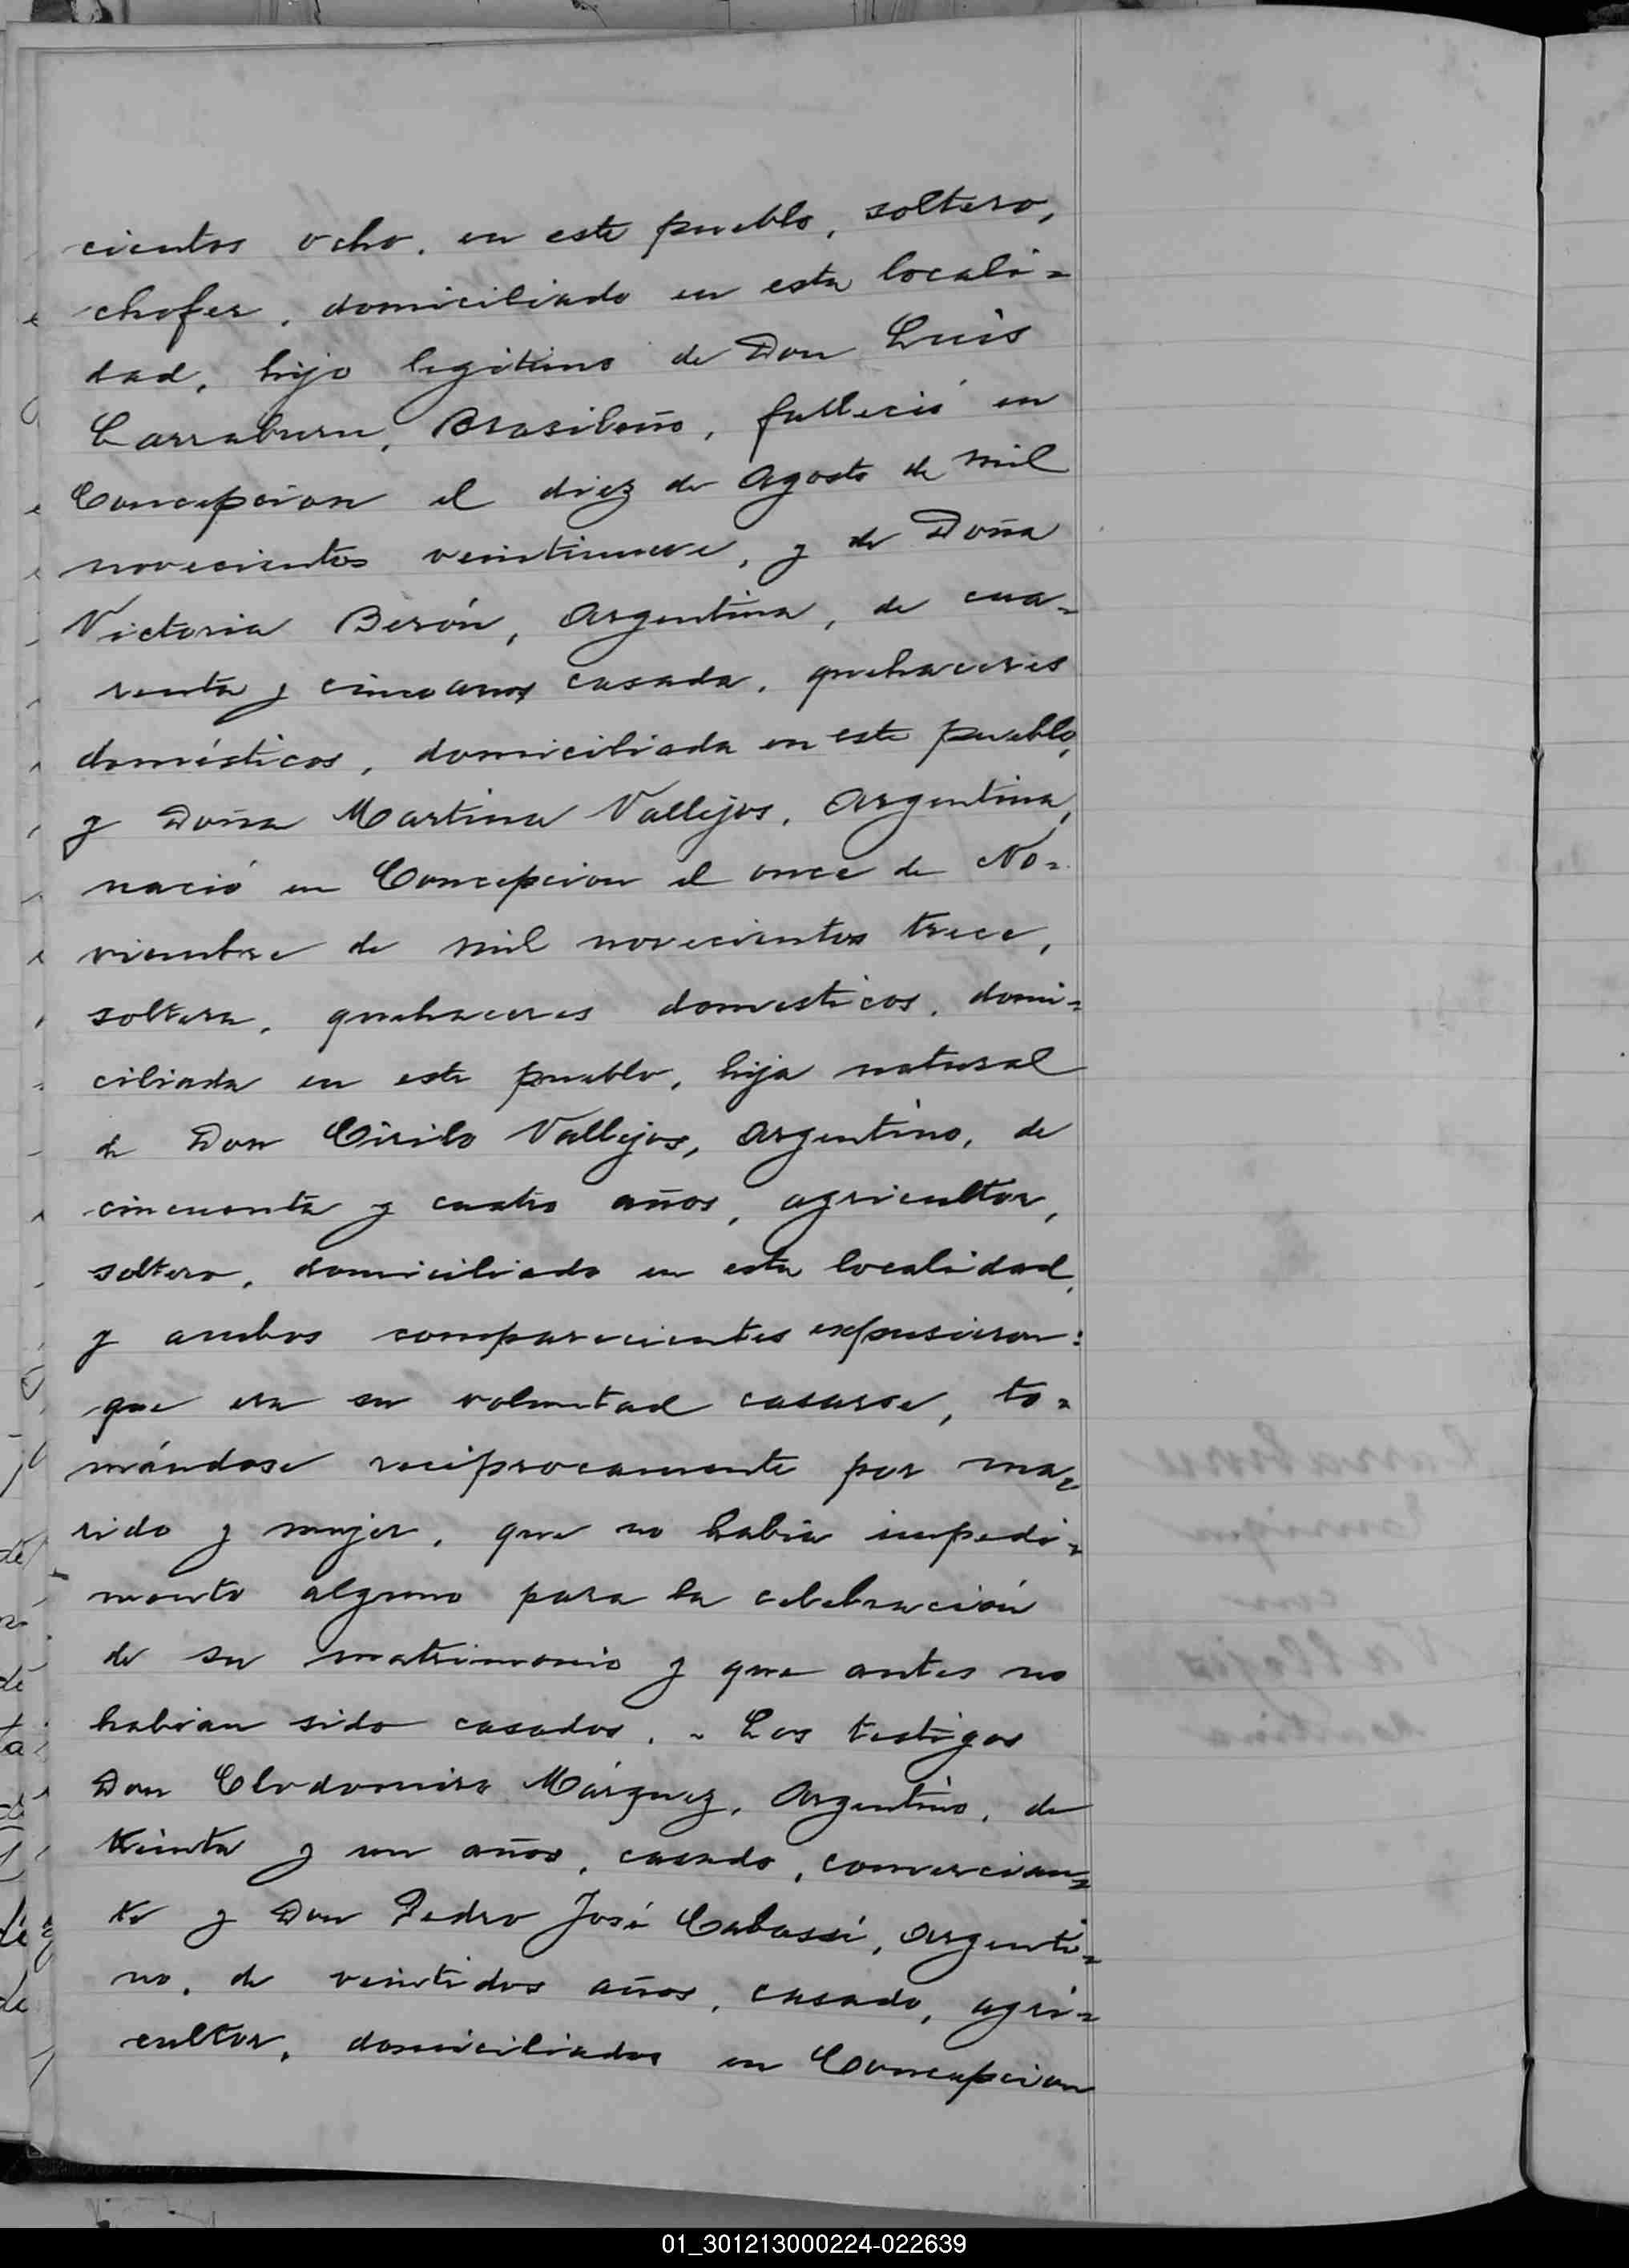 cientos ocho. en este pueblo, soltero,
chofer, domiciliado en esta locali=
dad, hijo legitimo de Don Luis
Larraburu, Brasileño, falleció en
Concepcion el diez de Agosto de mil
novecientos veintinueve, y de Doña
Victoria Berón, Argentina, de cua=
renta y cinco años casada, quehaceres
domésticos, domiciliada en este pueblo,
y Doña Martina Vallejos, Argentina,
nació en Concepcion el once de No=
viembre de mil novecientos trece,
soltera, quehaceres domesticos, domi=
ciliada en este pueblo, hija natural
de Don Cirilo Vallejos, Argentino, de
cincuenta y cuatro años, agricultor,
soltero, domiciliado en esta localidad,
y ambos comparecientes expusieron:
que era su voluntad casarse, to=
mándose reciprocamente por ma=
rido y mujer, que no habia impedi=
mento alguno para la celebración
de su matrimonio y que antes no
habian sido casados. - Los testigos
Don Clodomiro Márquez, Argentino, de
treinta y un años, casado, comercian=
te y Don Pedro José Cabassi, Argenti=
no, de veintidos años, casado, agri=
cultor, domiciliados en Concepcion
01_301213000224-022639